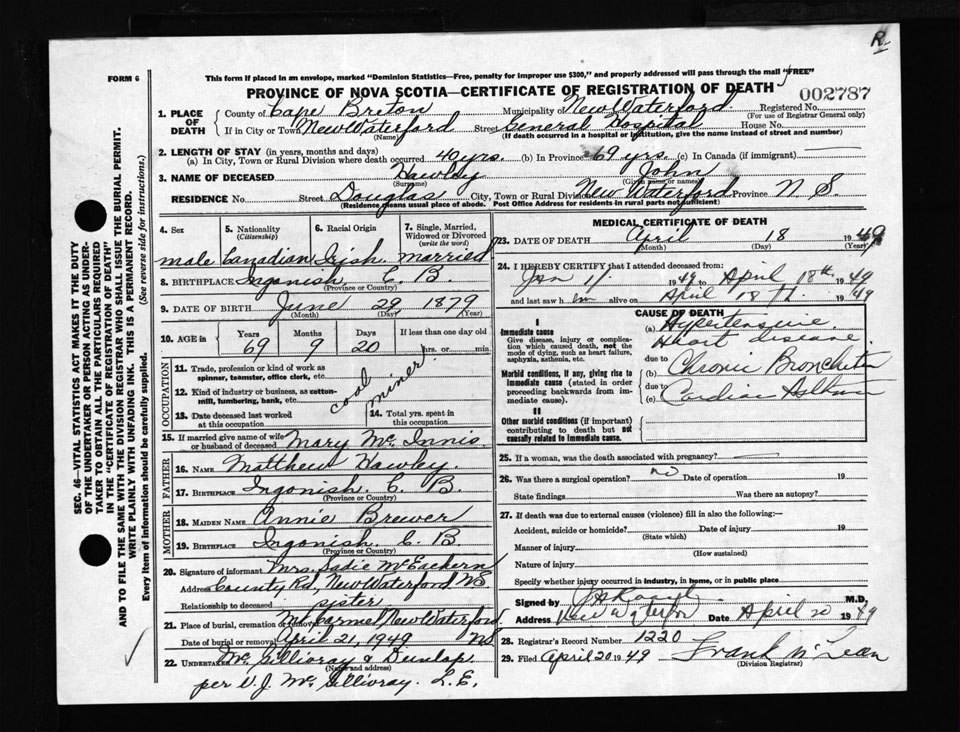 R.
FORM 6
This form if placed in an envelope, marked "Dominion Statistics—Free, penalty for improper use $300," and properly addressed will pass through the mail "FREE"
PROVINCE OF NOVA SCOTIA—CERTIFICATE OF REGISTRATION OF DEATH
002787
1. PLACE OF DEATH
County of Cape Breton Municipality of New Waterford. Registered No.
(For use of Registrar General only)
If in City or Town New Waterford Street General Hospital House No.
(Name) (If death occurred in a hospital or institution, give the name instead of street and number)
2. LENGTH OF STAY (in years, months and days)
(a) In City, Town or Rural Division where death occurred 40 yrs. (b) In Province 69 yrs. (c) In Canada (if immigrant)
3. NAME OF DECEASED Hawley John
(Surname) (Given name or names)
RESIDENCE No. Street Douglas City, Town or Rural Division New Waterford Province N. S.
(Residence means usual place of abode. Post Office Address for residents in rural parts not sufficient)
4. Sex
5. Nationality (Citizenship)
6. Racial Origin
7. Single, Married, Widowed or Divorced (write the word)
male Canadian Irish married
8. BIRTHPLACE Ingonish C. B.
(Province or Country)
9. DATE OF BIRTH June 29 1879
(Month) (Day) (Year)
10. AGE in Years Months Days If less than one day old
69 9 20 hrs. or min.
OCCUPATION
11. Trade, profession or kind of work as spinner, teamster, office clerk, etc.
12. Kind of industry or business, as cotton-mill, lumbering, bank, etc.
coal miner
13. Date deceased last worked at this occupation
14. Total yrs. spent in this occupation
15. If married give name of wife or husband of deceased Mary Mc Innis
FATHER
16. NAME Matthew Hawley.
17. BIRTHPLACE Ingonish. C. B.
(Province or Country)
MOTHER
18. MAIDEN NAME Annie Brewer
19. BIRTHPLACE Ingonish C. B.
(Province or Country)
20. Signature of informant Mrs. Sadie McEachern
Address County Rd, New Waterford NS
Relationship to deceased sister
21. Place of burial, cremation or removal Mt Carmel New Waterford
Date of burial or removal April 21, 1949 NS
22. UNDERTAKER Mc Gillivray & Dunlap
(Name and address)
per V. J. Mc Gillivray. L. E.
MEDICAL CERTIFICATE OF DEATH
23. DATE OF DEATH April 18 1949
(Month) (Day) (Year)
24. I HEREBY CERTIFY that I attended deceased from:
Jan 11 1949 to April 18th 1949
and last saw him alive on April 18th. 1949
CAUSE OF DEATH
I
Immediate cause
Give disease, injury or complication which caused death, not the mode of dying, such as heart failure, asphyxia, asthenia, etc.
(a) Hypertensive Heart disease
due to
Morbid conditions, if any, giving rise to immediate cause (stated in order proceeding backwards from immediate cause).
(b) Chronic Bronchitis
due to
(c) Cardiac Asthma
II
Other morbid conditions (if important) contributing to death but not causally related to immediate cause.
25. If a woman, was the death associated with pregnancy?
26. Was there a surgical operation? no Date of operation 19
State findings Was there an autopsy?
27. If death was due to external causes (violence) fill in also the following:—
Accident, suicide or homicide? Date of injury 19
(State which)
Manner of injury
(How sustained)
Nature of injury
Specify whether injury occurred in industry, in home, or in public place
Signed by M.D.
Address New Waterford Date April 20 1949
28. Registrar's Record Number 1220
29. Filed April 20 1949 Frank McLean
(Division Registrar)
SEC. 46—VITAL STATISTICS ACT MAKES IT THE DUTY OF THE UNDERTAKER OR PERSON ACTING AS UNDERTAKER TO OBTAIN ALL THE PARTICULARS REQUIRED IN THE "CERTIFICATE OF REGISTRATION OF DEATH" AND TO FILE THE SAME WITH THE DIVISION REGISTRAR WHO SHALL ISSUE THE BURIAL PERMIT.
WRITE PLAINLY WITH UNFADING INK. THIS IS A PERMANENT RECORD.
Every item of information should be carefully supplied. (See reverse side for instructions.)